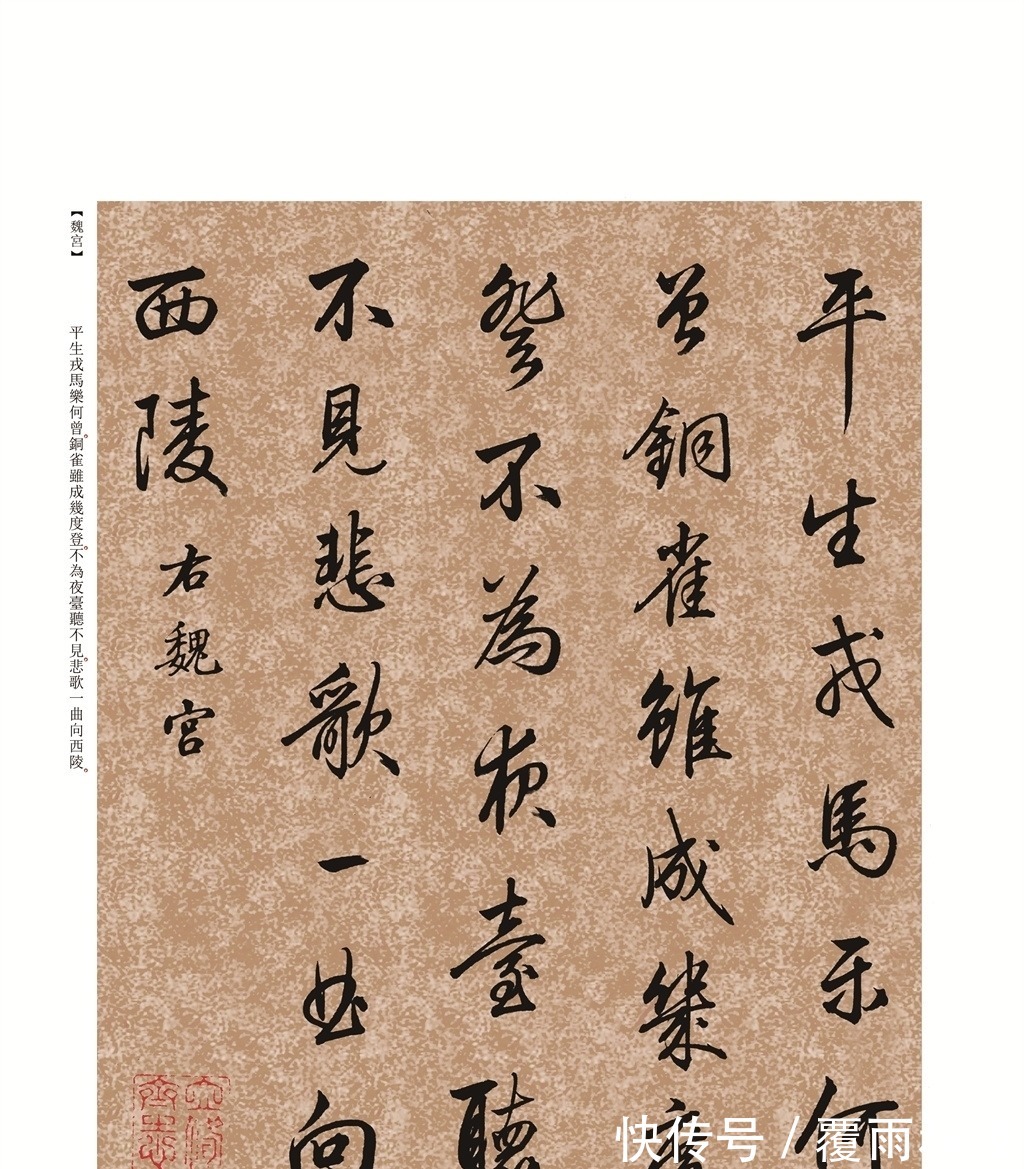 平生戎馬樂何
曾銅雀雖成幾度
登不為夜臺聽
不見悲歌一曲向
西陵 右魏宮
【魏宮】 平生戎馬樂何曾。銅雀雖成幾度登。不為夜臺聽不見。悲歌一曲向西陵。
快传号 / 覆雨